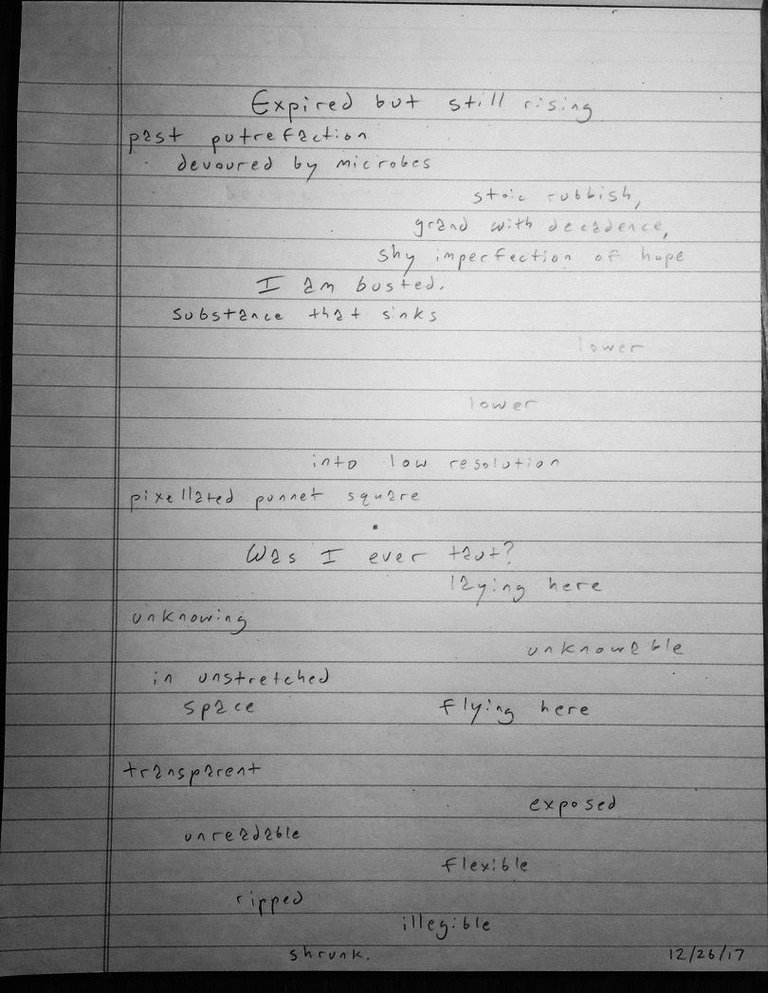 Expired but still rising
past putrefaction
devoured by microbes
stoic rubbish,
grand with decadence,
shy imperfection of hope
I am busted.
Substance that sinks
lower
lower
into low resolution
pixellated punnet square
Was I ever taut?
laying here
unknowing
unknowable
in unstretched
space flying here
transparent
exposed
unreadable
flexible
ripped
illegible
shrunk. 12/26/17